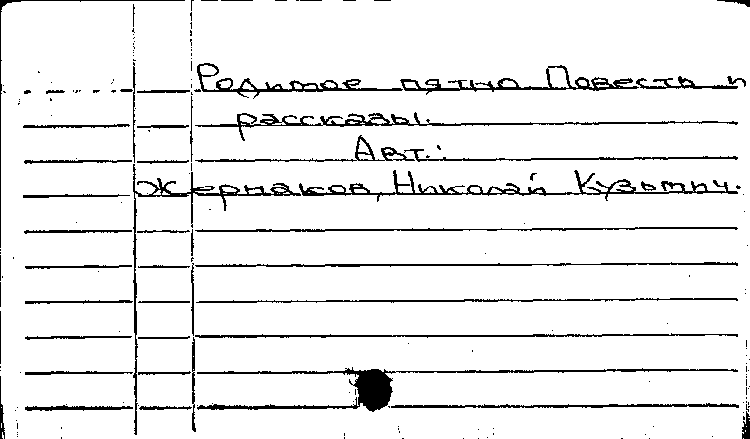 Родимое пятно Повесть и
рассказы.
Авт.:
Жернаков, Николай Кузьмич.